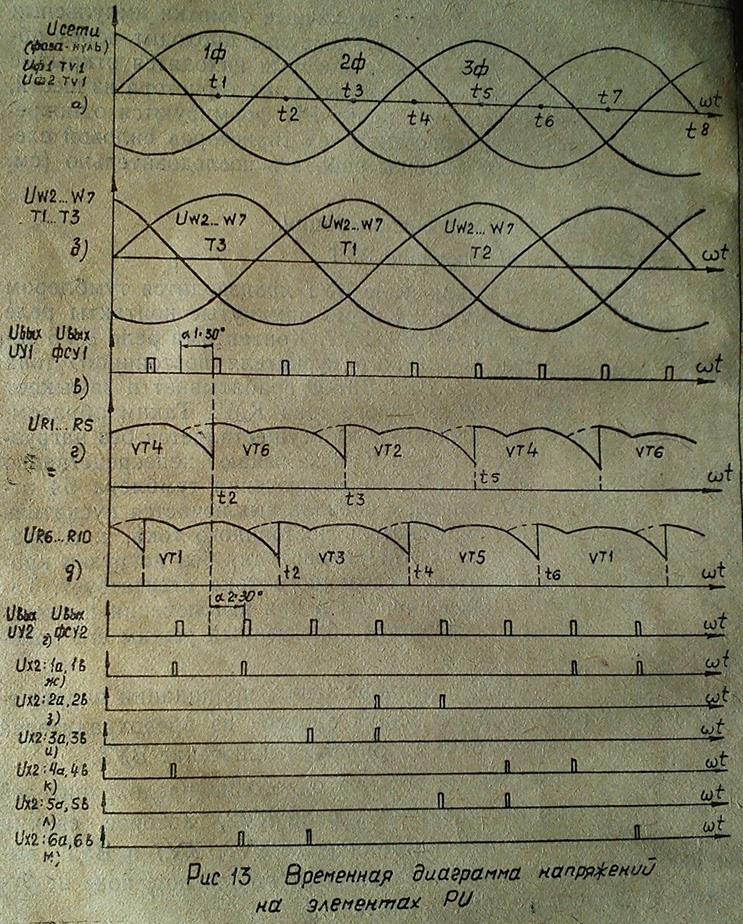 Uсети
(фаза-нуль)
Uф1 TV1
Uф2 TV1
а)
1ф
2ф
3ф
t1
t2
t3
t4
t5
t6
t7
t8
ωt
UW2...W7
T1...T3
б)
UW2...W7
T3
UW2...W7
T1
UW2...W7
T2
ωt
Uвых Uвых
УУ1 ФСУ1
в)
α1=30°
ωt
UR1...R5
г)
VT4
VT6
VT2
VT4
VT6
t2
t3
t5
ωt
UR6...R10
д)
VT1
VT3
VT5
VT1
t2
t4
t6
ωt
Uвых Uвых
УУ2 ФСУ2
α2=30°
ωt
UX2:1а,1в
ж)
ωt
UX2:2а,2в
з)
ωt
UX2:3а,3в
и)
ωt
UX2:4а,4в
к)
ωt
UX2:5а,5в
л)
ωt
UX2:6а,6в
м)
ωt
Рис 13 Временная диаграмма напряжений
на элементах РU